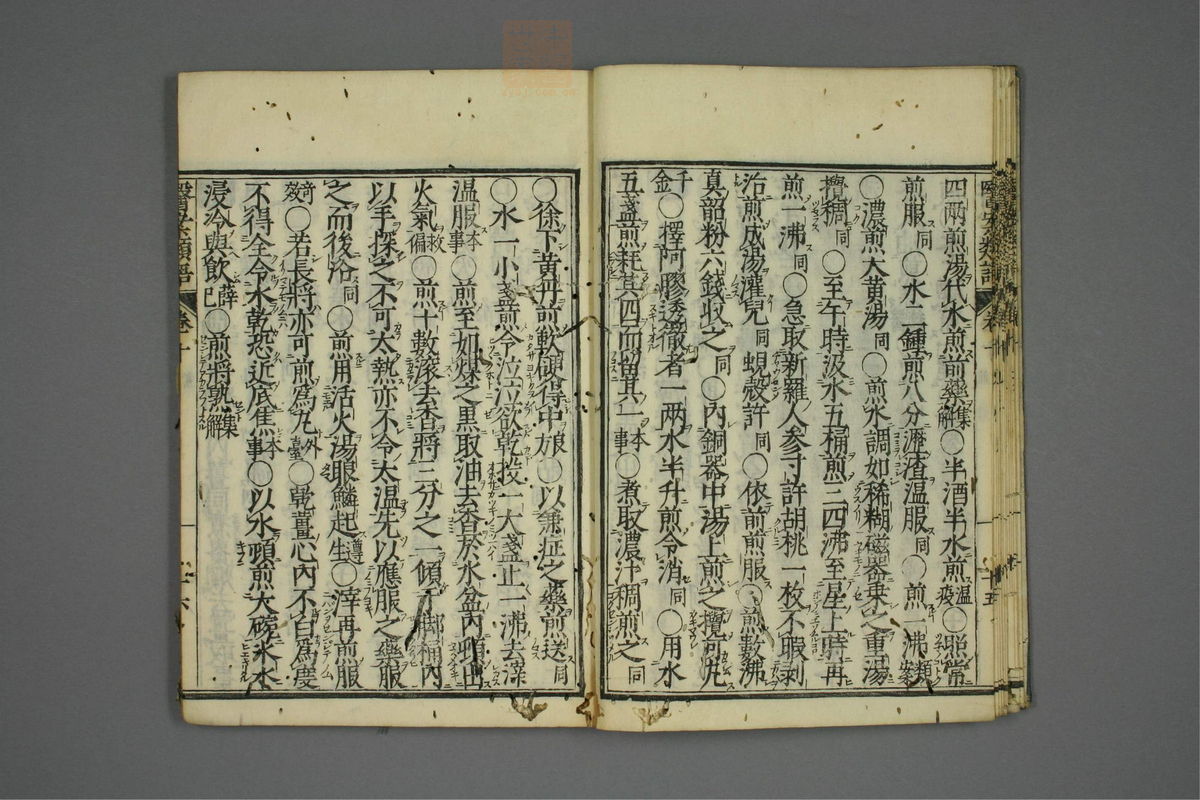 四兩煎湯代水煎前藥集解○半酒半水煎温疫○照常
煎服同○水二鍾煎八分瀝渣温服同○煎一沸類案
○濃煎大黄湯同○煎水調如稀糊磁器乗之重湯
攪稠同○至午時汲水五桶煎三四沸至星上時再
煎一沸同○急取新羅人参寸許胡桃一枚不暇剥
治煎成湯灌兒同蜆殻許同○依前煎服○煎數沸
真韶粉六錢收之同○内銅器中湯上煎之攪可丸
千金○擇阿膠透徹者一兩水半升煎令消同○用水
五盞煎耗其四而留其一本事○煮取濃汁稠煎之同
○徐下黄丹煎軟硬得中㫰○以兼症之藥煎送同
○水一小盞煎令泣泣欲乾投一大盞止一沸去滓
温服本事○煎至如煤之黒取油去香於水盆内頓出
火氣救偏○煎十數滚去香將三分之一傾脚桶内
以手探之不可太熱亦不令太温先以應服之藥服
之而後浴同○煎用活火湯眼鱗起遵生○滓再煎服
奇效○若長將亦可煎爲丸外臺○乾薑心内不白爲度
不得全令水乾恐近底焦本事○以水頓煎大磣氷水
浸冷與飲薛已○煎將熟集解
醫學類語 卷十 十六